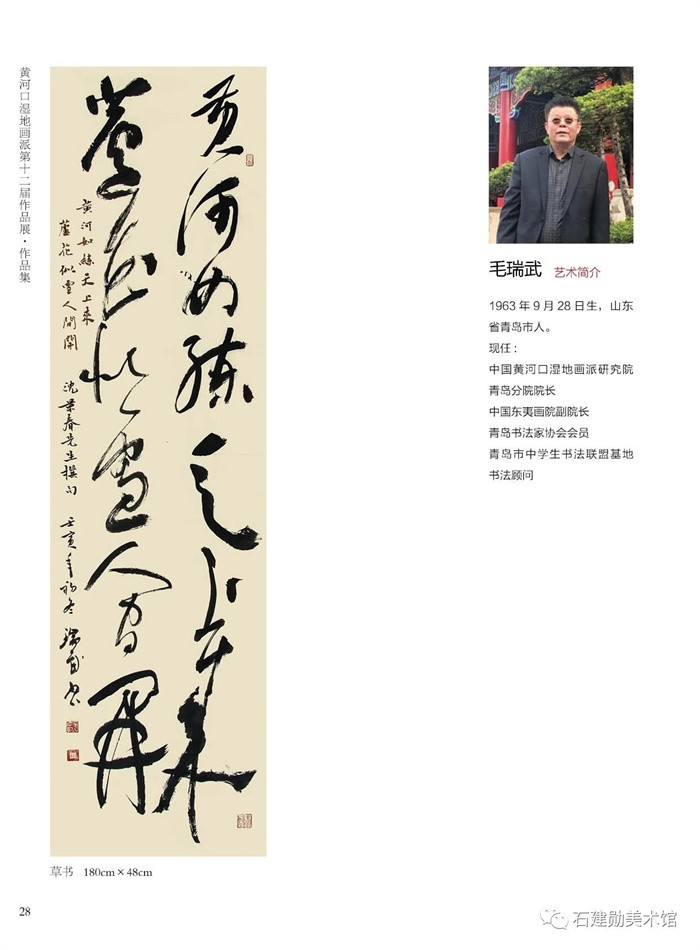 黄河口湿地画派第十二届作品展·作品集
黄河如练天上来
蘆花似雪人间開
黄河如練天上來
蘆花似雪人間開
沈景春先生撰句
壬寅年初冬
瑞武书
毛瑞武 艺术简介
1963 年 9 月 28 日生，山东
省青岛市人。
现任：
中国黄河口湿地画派研究院
青岛分院院长
中国东夷画院副院长
青岛书法家协会会员
青岛市中学生书法联盟基地
书法顾问
草书 180cm×48cm
28
石建勋美术馆